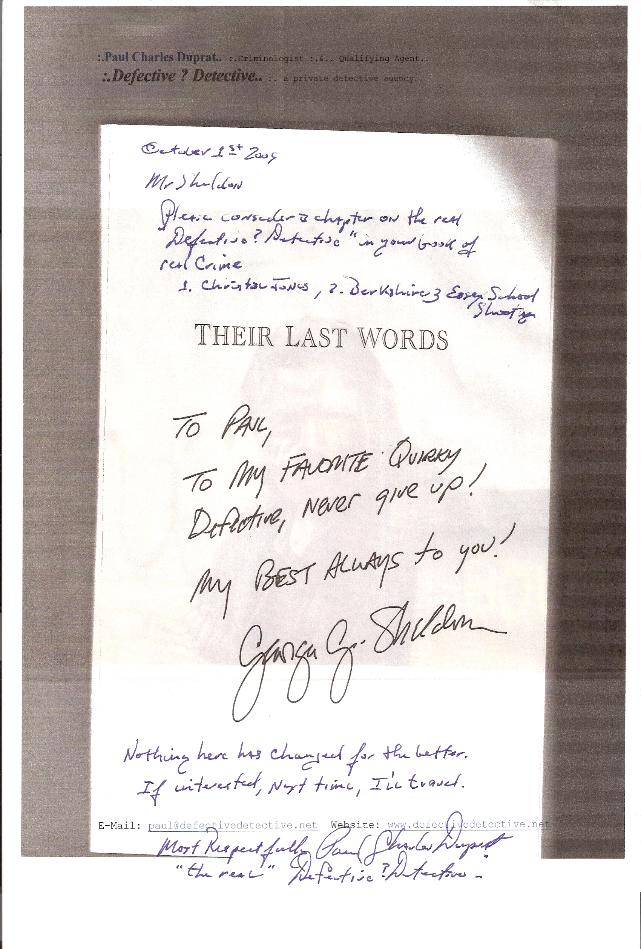 :.Paul Charles Duprat.. :.Criminologist :.&.. Qualifying Agent..
:.Defective ? Detective.. :. a private detective agency.
October 1st 2009
Mr Sheldon
Please consider a chapter on the real
"Defective? Detective" in your book of
real Crime
1. Christen Jones, 2. Berkshire 3 Essex School
Shooting
THEIR LAST WORDS
TO PAUL,
TO MY FAVORITE QUIRKY
Defective, Never give up!
MY BEST ALWAYS to you!
George G. Sheldon
Nothing here has changed for the better.
If interested, Next time, I'll travel.
E-Mail: paul@defectivedetective.net Website: www.defectivedetective.net
Most Respectfully Paul Charles Duprat
"the real" Defective? Detective -